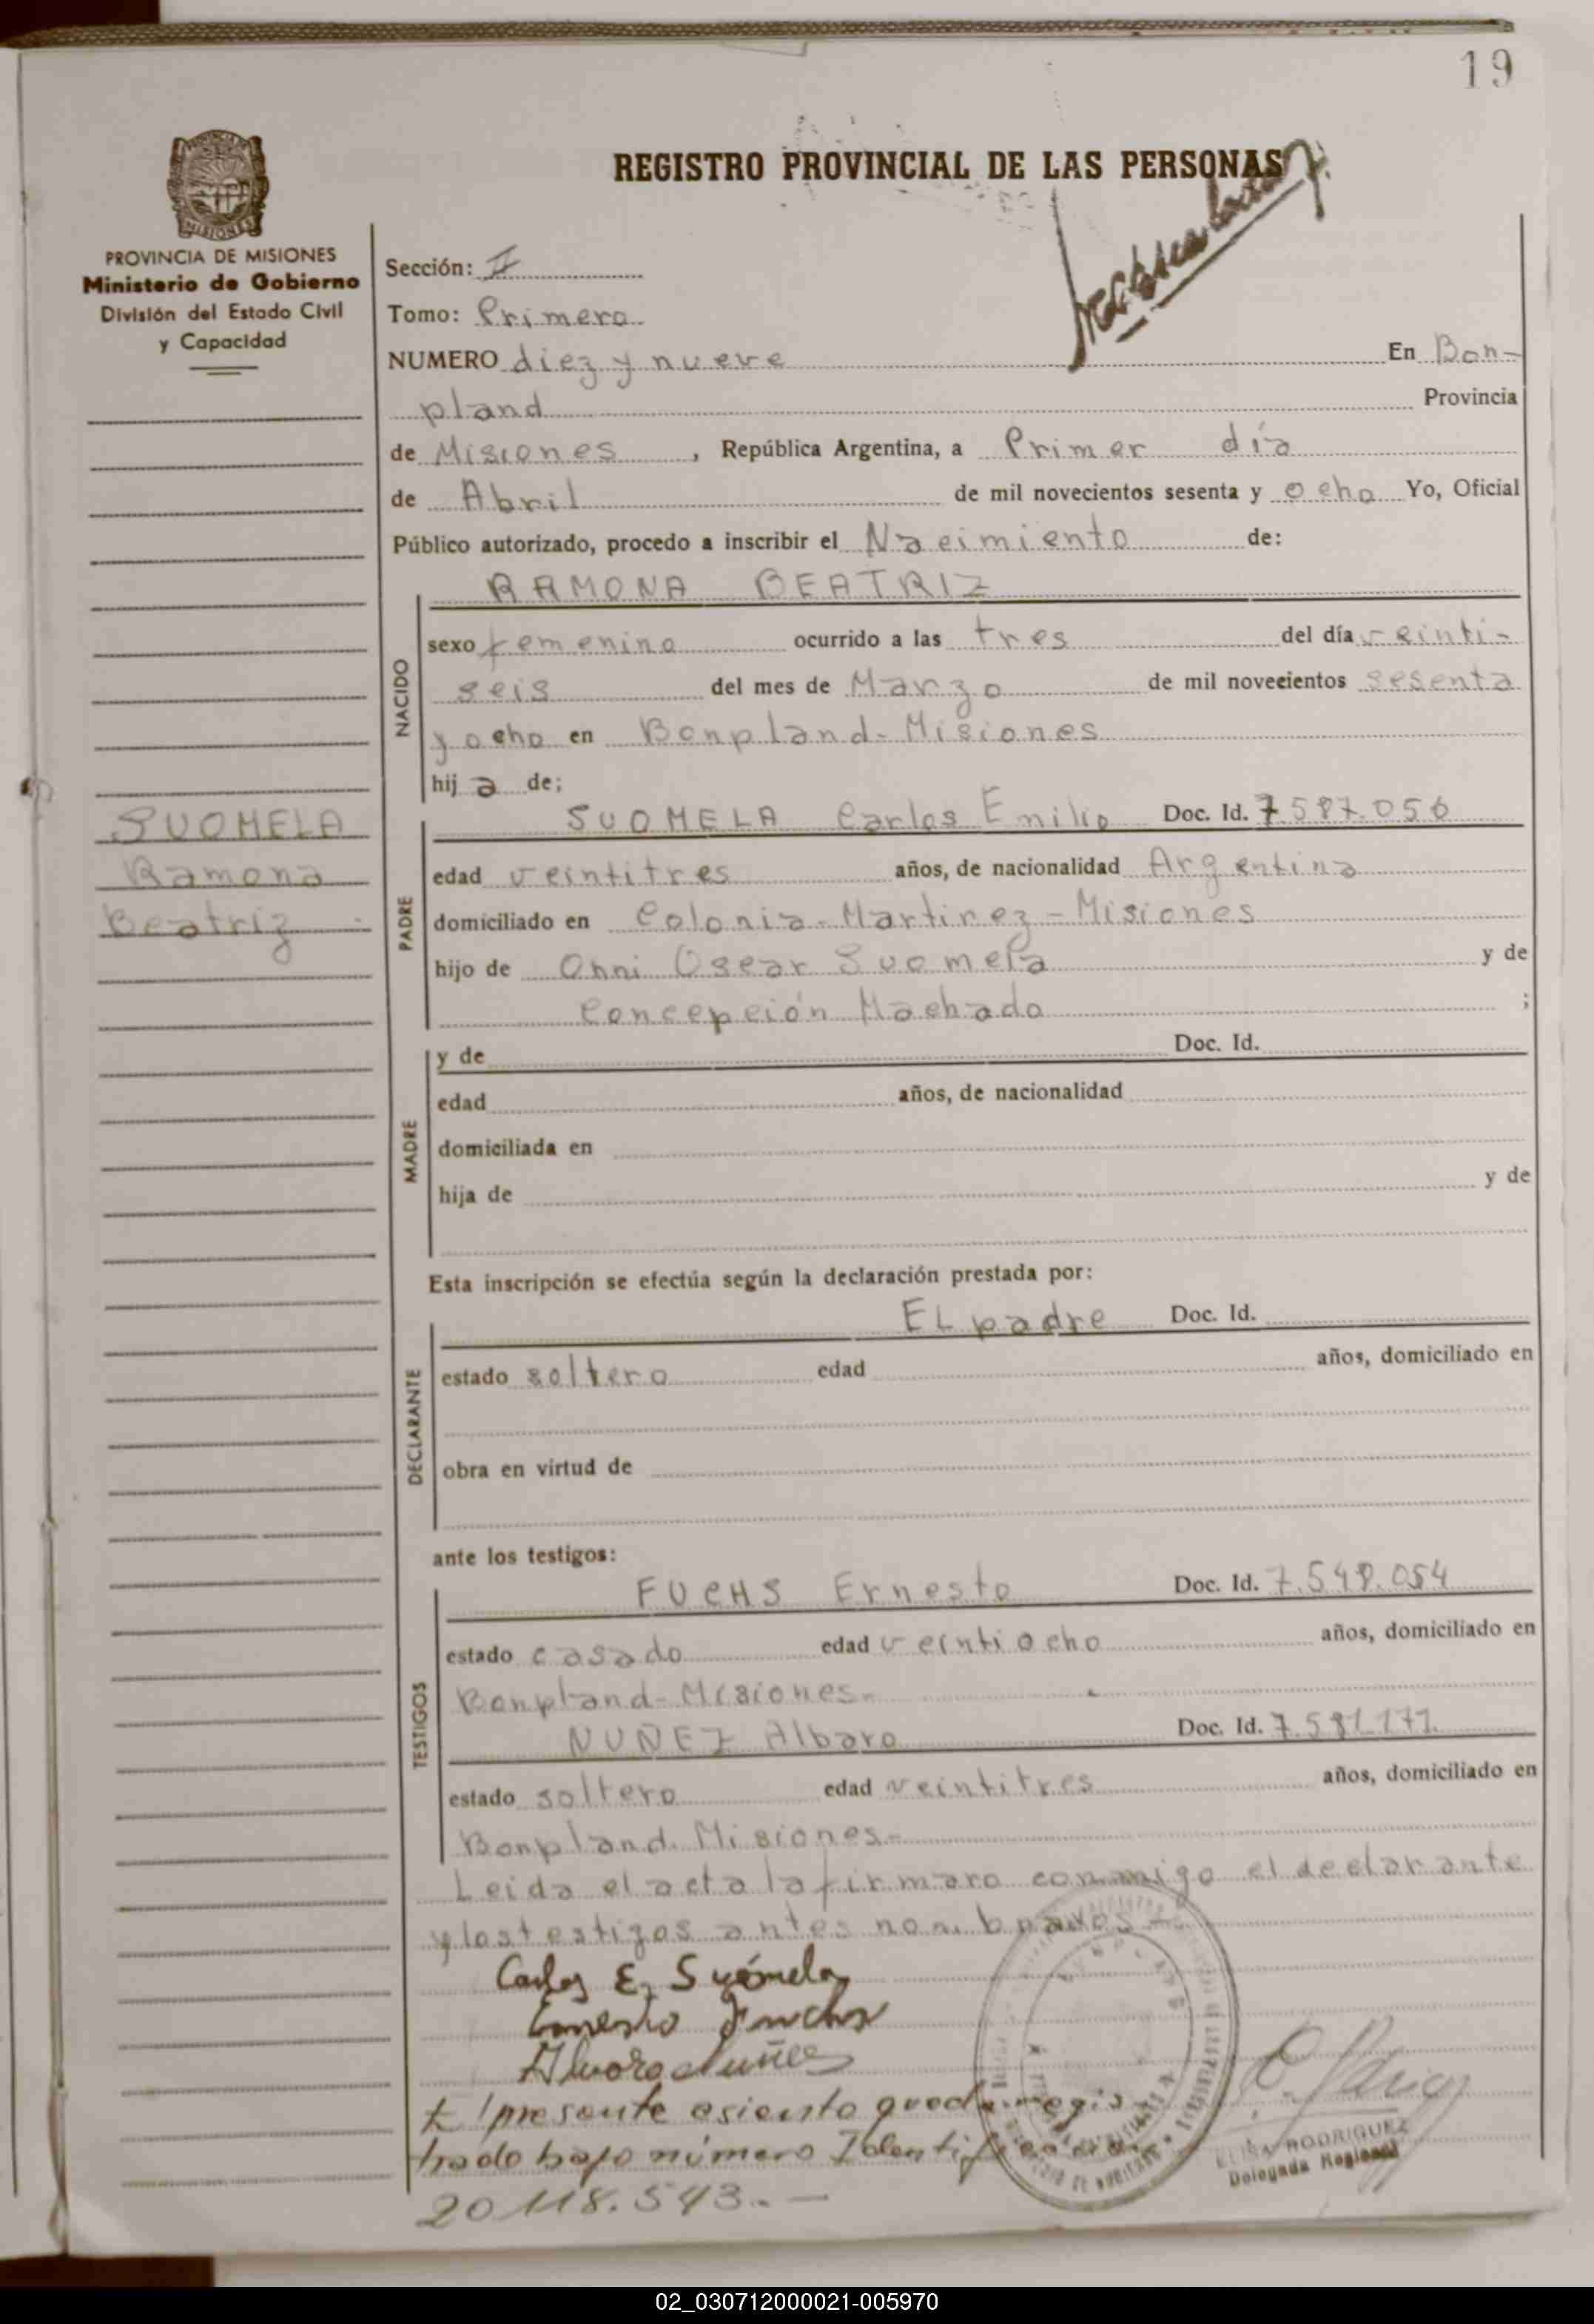 19
REGISTRO PROVINCIAL DE LAS PERSONAS
PROVINCIA DE MISIONES
Ministerio de Gobierno
División del Estado Civil
y Capacidad
Sección: II
Tomo: Primero
NUMERO diez y nueve En Bon-
pland Provincia
de Misiones, República Argentina, a Primer día
de Abril de mil novecientos sesenta y ocho Yo, Oficial
Público autorizado, procedo a inscribir el Nacimiento de:
RAMONA BEATRIZ
NACIDO
sexo femenino ocurrido a las tres del día veinti-
seis del mes de Marzo de mil novecientos sesenta
y ocho en Bonpland-Misiones
hij a de;
SUOMELA
Ramona
Beatriz
PADRE
SUOMELA Carlos Emilio Doc. Id. 7.587.056
edad veintitres años, de nacionalidad Argentina
domiciliado en Colonia Martinez-Misiones
hijo de Onni Oscar Suomela y de
Concepción Machado ;
MADRE
y de Doc. Id.
edad años, de nacionalidad
domiciliada en
hija de y de
Esta inscripción se efectúa según la declaración prestada por:
DECLARANTE
EL padre Doc. Id.
estado soltero edad años, domiciliado en
obra en virtud de
ante los testigos:
TESTIGOS
FUCHS Ernesto Doc. Id. 7.548.054
estado casado edad veintiocho años, domiciliado en
Bonpland-Misiones-
NUÑEZ Albaro Doc. Id. 7.581.171
estado soltero edad veintitres años, domiciliado en
Bonpland. Misiones-
Leida el acta la firmaro conmigo el declarante
y los testigos antes nombrados-
Carlos E. Suómela
Ernesto Fuchs
Alvoro Nuñes
El presente asiento queda regis
trado bajo número Identificatorio
20118.543.-
ELISA RODRIGUEZ
Delegada Regional
02_030712000021-005970